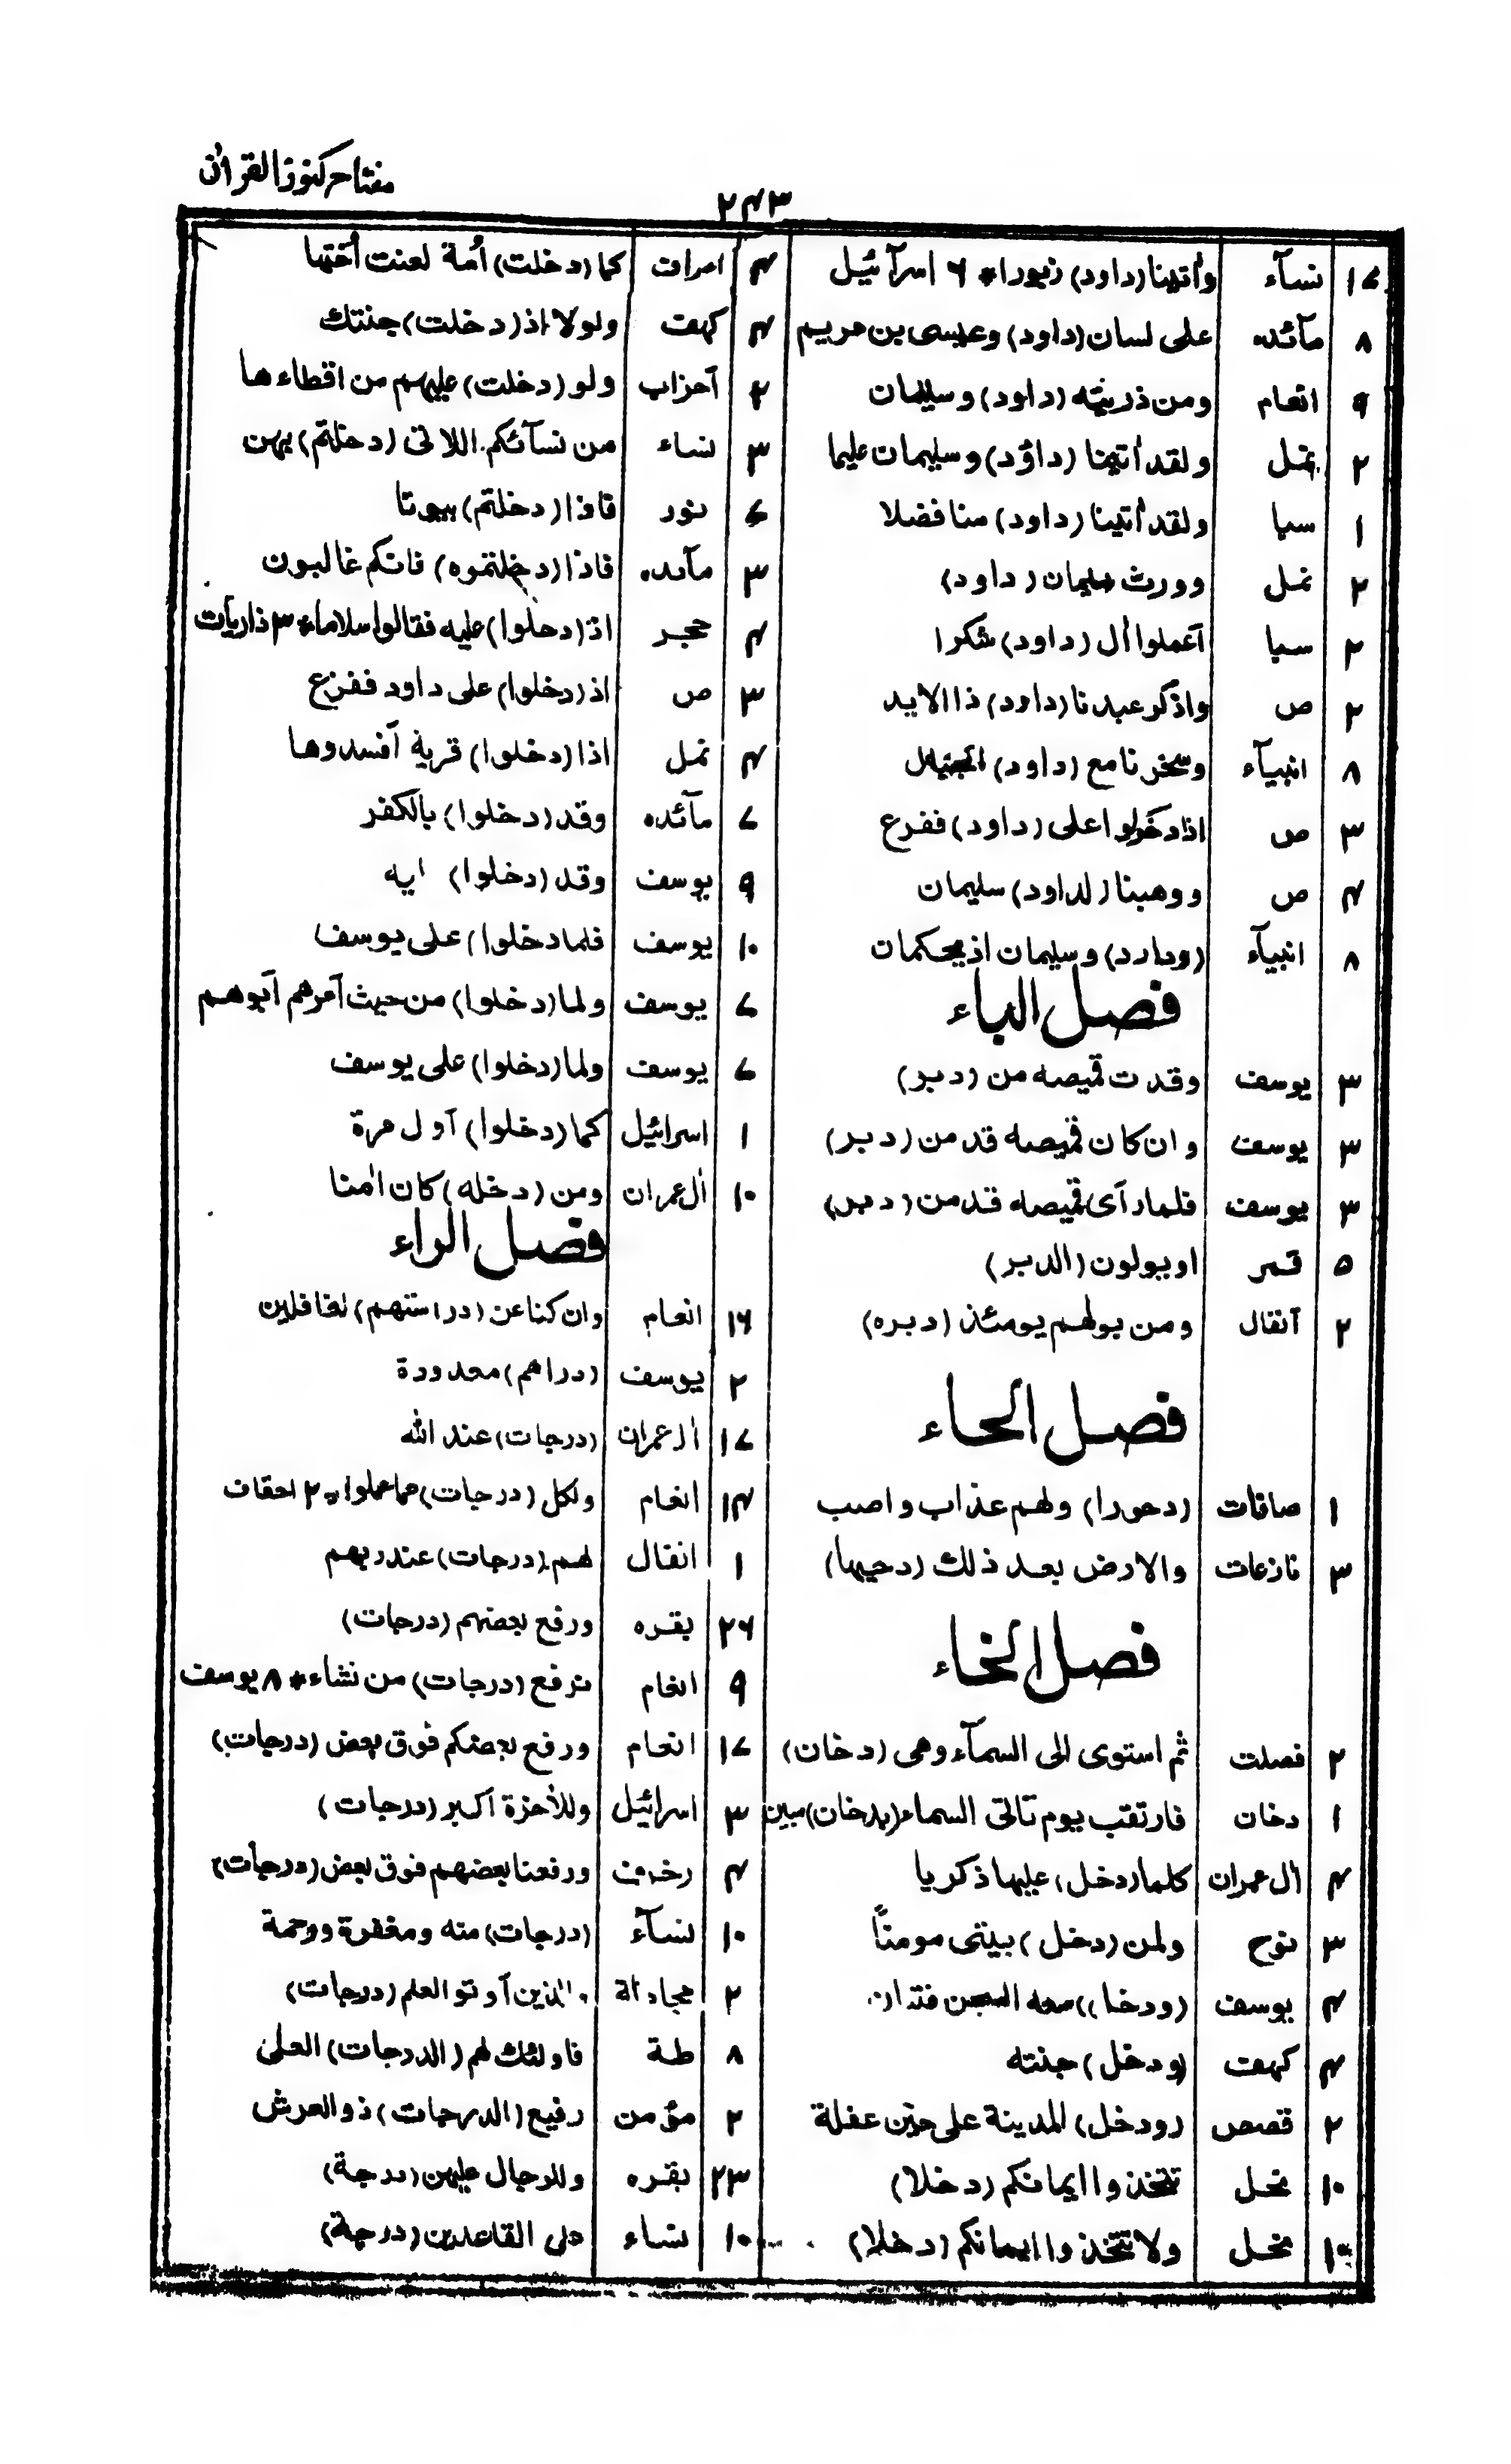 مفتاح كنوز القرآن
۲۴۳
۱۷ نسآء وأتینا (داود) زبورا * ۶ اسرآئیل
۸ مآئده على لسان (داود) وعیسى بن مریم
۹ انعام ومن ذریته (داود) و سلیمان
۲ نمل ولقد أتینا (داؤد) و سلیمان علیما
۱ سبا ولقد أتینا (داود) منا فضلا
۲ نمل وورث سلیمان (داود)
۲ سبا آعملوا أل (داود) شكرا
۲ ص واذكر عبدنا (داود) ذا الاید
۸ انبیآء وسخرنا مع (داود) الجبال
۳ ص اذ دخلوا على (داود) ففزع
۴ ص ووهبنا (لداود) سلیمان
۸ انبیآء (وداود) وسلیمان اذ یحكمان
فصل الباء
۳ یوسف وقدت قمیصه من (دبر)
۳ یوسف وان كان قمیصه قد من (دبر)
۳ یوسف فلما رآى قمیصه قد من (دبر)
۵ قمر او یولون (الدبر)
۲ آنفال ومن یولهم یومئذ (دبره)
فصل الحاء
۱ صافات (دحورا) ولهم عذاب واصب
۳ نازعات والارض بعد ذلك (دحیها)
فصل الخاء
۲ فصلت ثم استوى الى السمآء وهى (دخان)
۱ دخان فارتقب یوم تاتى السماء (بدخان) مبین
۴ أل عمران كلما (دخل) علیها ذكریا
۳ نوح ولمن (دخل) بیتى مومنًا
۴ یوسف (ودخل) معه السجن فتیان
۴ كهف (ودخل) جنته
۲ قصص (ودخل) المدینة على حین غفلة
۱۰ نحل تتخذوا ایمانكم (دخلا)
۱۰ نحل ولا تتخذوا ایمانكم (دخلا)
۴ اعراف كما (دخلت) أمة لعنت أختها
۴ كهف ولولا اذ (دخلت) جنتك
۲ آحزاب ولو (دخلت) علیهم من اقطاءها
۳ نساء من نسآئكم اللاتى (دخلتم) بهن
۷ نور فاذا (دخلتم) بیوتا
۳ مآئده فاذا (دخلتموه) فانكم غالبون
۴ حجر اذ (دخلوا) علیه فقالوا سلاما * ۳ ذاریآت
۳ ص اذ (دخلوا) على داود ففزع
۴ نمل اذا (دخلوا) قریة آفسدوها
۷ مآئده وقد (دخلوا) بالكفر
۹ یوسف وقد (دخلوا) ایه
۱۰ یوسف فلما دخلوا) على یوسف
۷ یوسف ولما (دخلوا) من حیث آمرهم آبوهم
۷ یوسف ولما (دخلوا) على یوسف
۱ اسرائیل كما (دخلوا) آول مرة
۱۰ أل عمران ومن (دخله) كان أمنا
فصل الراء
۱۶ انعام وان كنا عن (دراستهم) لغافلین
۲ یوسف (دراهم) معدودة
۱۷ أل عمران (درجات) عند الله
۱۴ انعام ولكل (درجات) مما عملوا * ۲ احقاف
۱ انفال لهم (درجات) عند ربهم
۲۶ بقره ورفع بعضهم (درجات)
۹ انعام نرفع (درجات) من نشاء * ۸ یوسف
۱۷ انعام ورفع بعضكم فوق بعض (درجات)
۳ اسرائیل وللأخرة آكبر (درجات)
۴ زخرف ورفعنا بعضهم فوق بعض (درجات)
۱۰ نسآء (درجات) منه ومغفرة ورحمة
۲ مجادلة والذین آوتوا العلم (درجات)
۸ طه فاولئك لهم (الدرجات) العلى
۲ مؤمن رفیع (الدرجات) ذوالعرش
۲۳ بقره وللرجال علیهن (درجة)
۱۰ نساء على القاعدین (درجة)